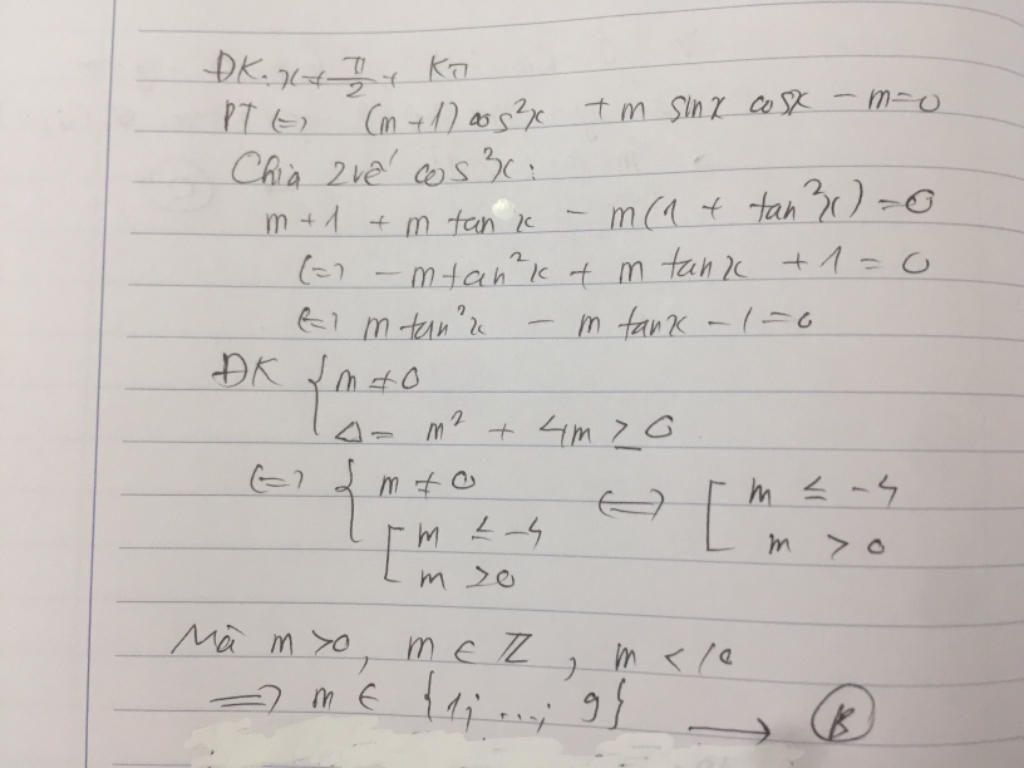 ĐK: x ≠ π/2 + Kπ
PT <=> (m+1) cos²x + m sinx cosx - m=0
Chia 2 vế cos²x:
m+1 + m tan x - m(1 + tan²x) = 0
<=> -m tan²x + m tanx + 1 = 0
<=> m tan²x - m tanx - 1 = 0
ĐK { m ≠ 0
Δ = m² + 4m ≥ 0
<=> { m ≠ 0 <=> [ m ≤ -4
[ m ≤ -4 m > 0
m ≥ 0
Mà m > 0, m ∈ ℤ, m < 10
=> m ∈ {1; ...; 9} → B